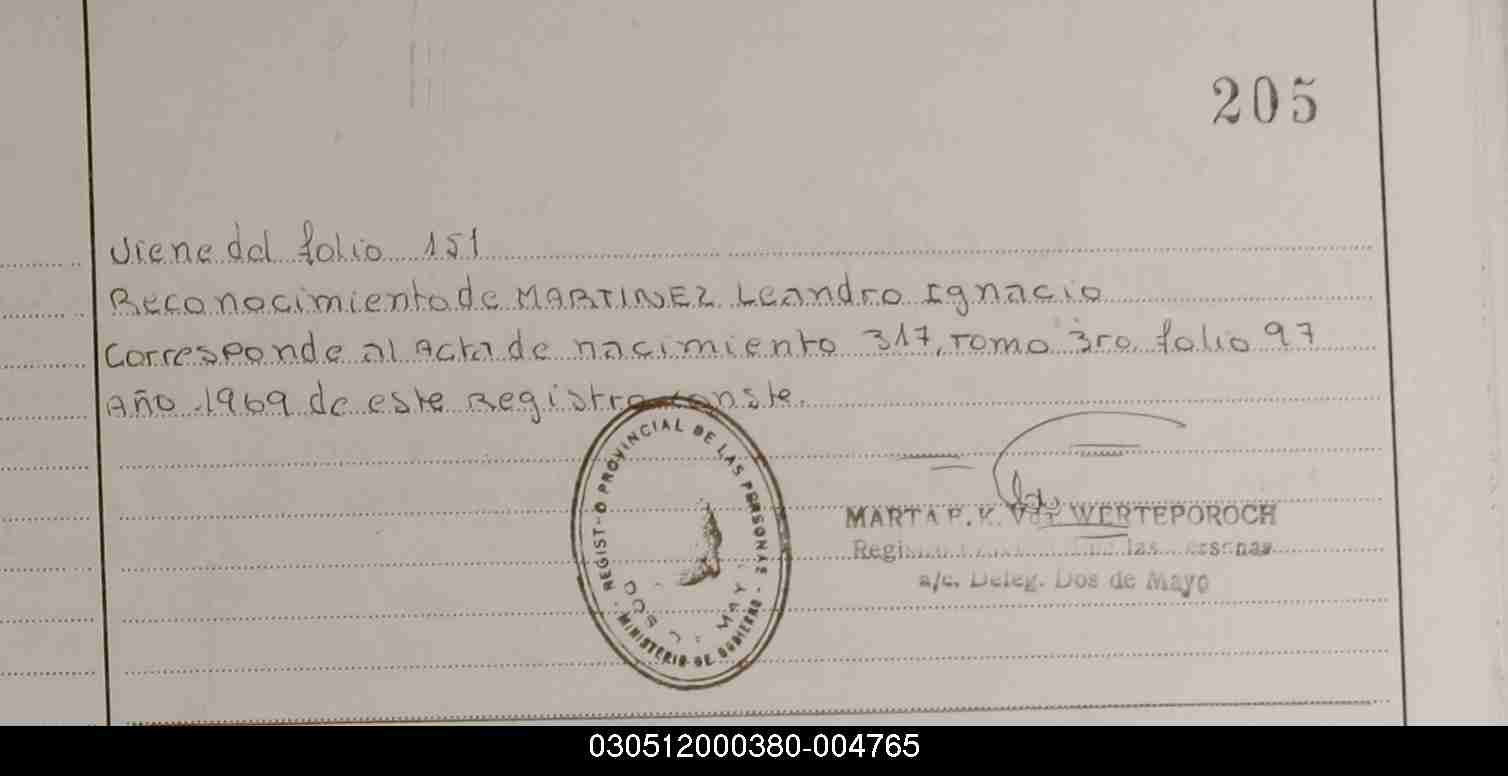 205
Viene del folio 151
Reconocimiento de MARTINEZ Leandro Ignacio
Corresponde al Acta de nacimiento 317, Tomo 3ro, folio 97
Año 1969 de este Registro conste.
REGIST-O PROVINCIAL DE LAS PERSONAS - MINISTERIO DE GOBIERNO -
MARTA P. K. WERTEPOROCH
a/c. Deleg. Dos de Mayo
030512000380-004765